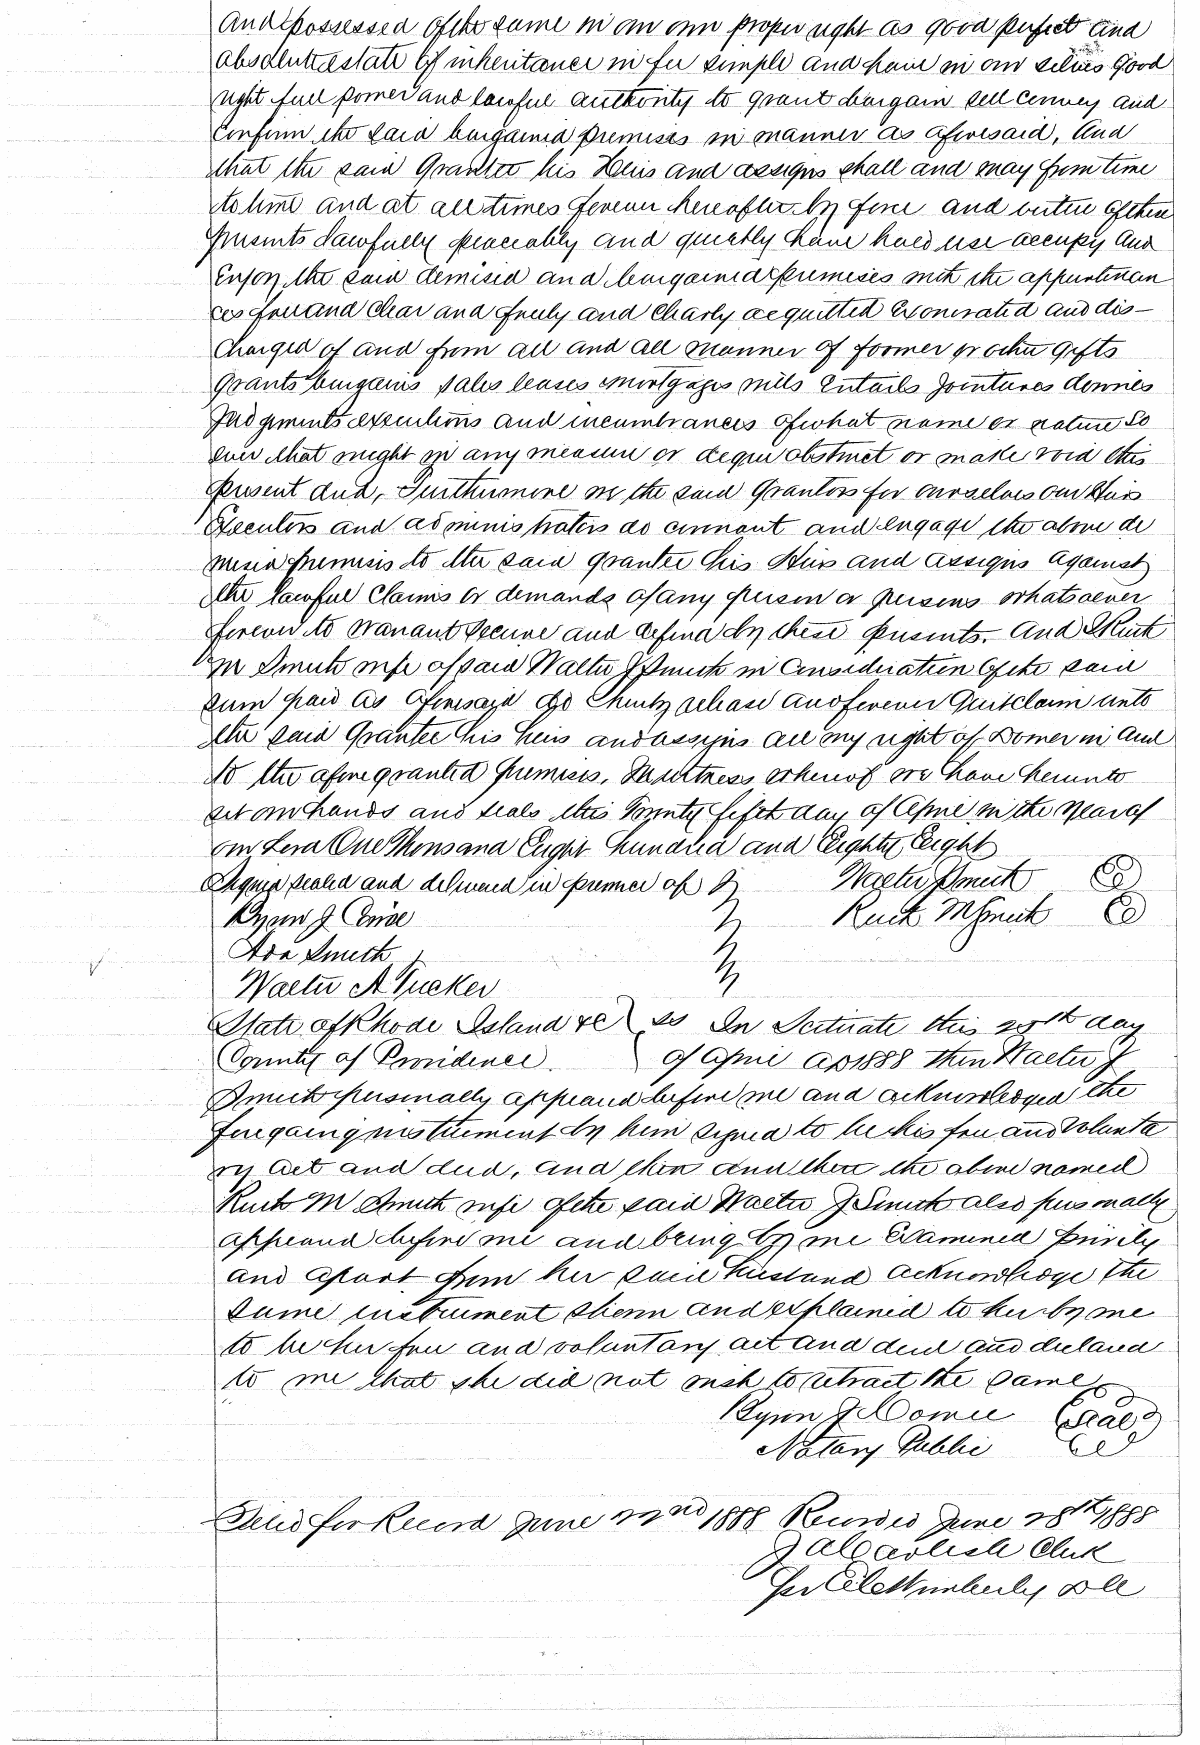 and possessed of the same in our own proper right as good perfect and
absolute estate of inheritance in fee simple and have in our selves good
right full power and lawful authority to grant bargain sell convey and
confirm the said bargained premises in manner as aforesaid, And
that the said Grantee his Heirs and assigns shall and may from time
to time and at all times forever hereafter by force and virtue of these
presents Lawfully peaceably and quietly have hold use occupy and
Enjoy the said demised and bargained premises with the appurtenan
ces free and clear and freely and clearly acquitted Exonerated and dis-
charged of and from all and all manner of former or other gifts
grants bargains sales leases mortgages wills Entails Jointures dowries
Judgments executions and incumbrances of what name or nature so
ever that might in any measure or degree obstruct or make void this
present deed, Furthermore we the said Grantors for ourselves our Heirs
Executors and administrators do covenant and engage the above de
mised premises to the said grantee his Heirs and assigns against
the lawful claims or demands of any person or persons whatsoever
forever to warrant secure and defend by these presents. And I Ruth
M Smith wife of said Walter J Smith in consideration of the said
sum paid as aforesaid do hereby release and forever Quitclaim unto
the said Grantee his heirs and assigns all my right of Dower in and
to the afore granted premises. In witness whereof we have hereunto
set our hands and seals this Twenty fifth day of April in the year of
our Lord One Thousand Eight hundred and Eighty Eight
Signed sealed and delivered in presence of Walter J Smith
Ruth M Smith
Ada Smith
Walter A Tucker
State of Rhode Island &c ss In Scituate this 25th day
County of Providence of April AD 1888 then Walter J
Smith personally appeared before me and acknowledged the
foregoing instrument by him signed to be his free and volunta
ry act and deed, and then and there the above named
Ruth M Smith wife of the said Walter J Smith also personally
appeared before me and being by me Examined privily
and apart from her said husband acknowledge the
same instrument shown and explained to her by me
to be her free and voluntary act and deed and declared
to me that she did not wish to retract the same
Seal
Notary Public
Filed for Record June 22nd 1888 Recorded June 28th 1888
Clerk
Per Wimberly